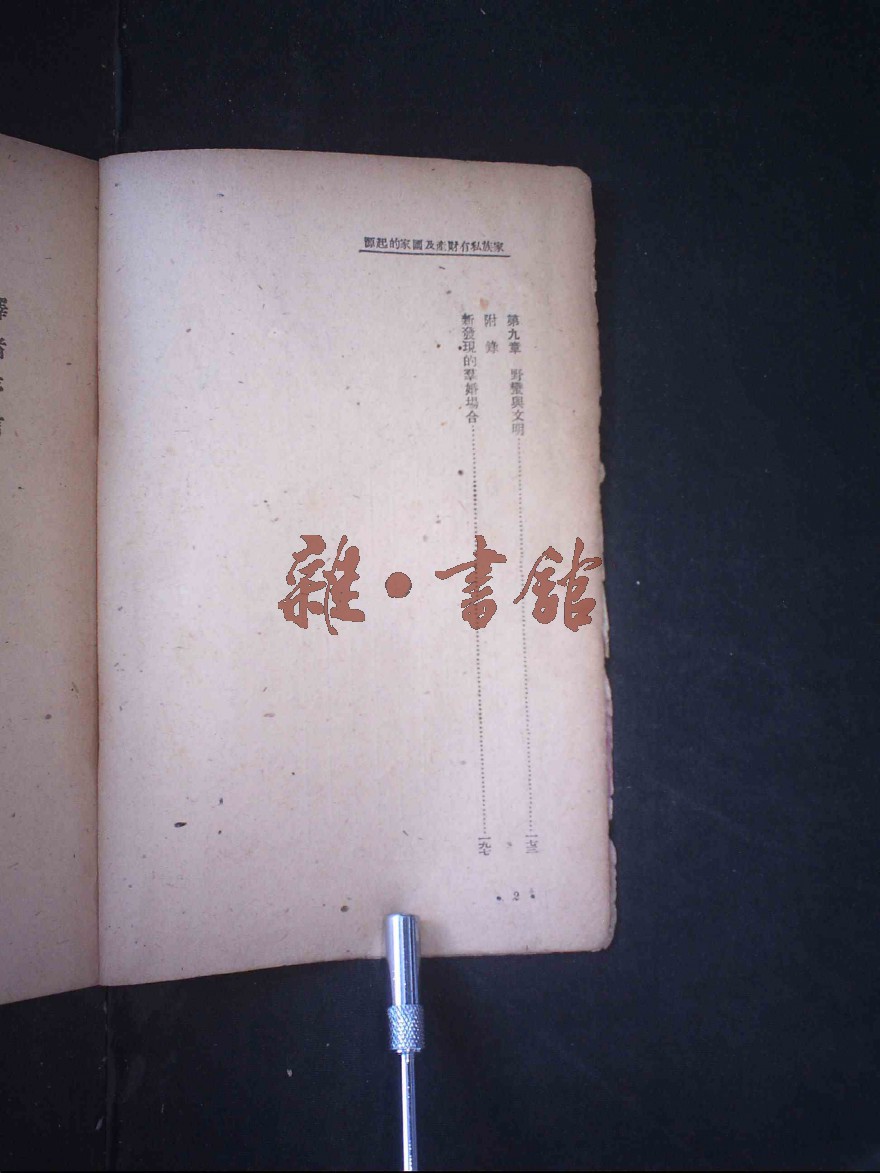 家族私有財產及國家的起源
第九章　野蠻與文明……一七三
附錄
新發現的羣婚場合……一九七
2
雜·書館
譯者序言